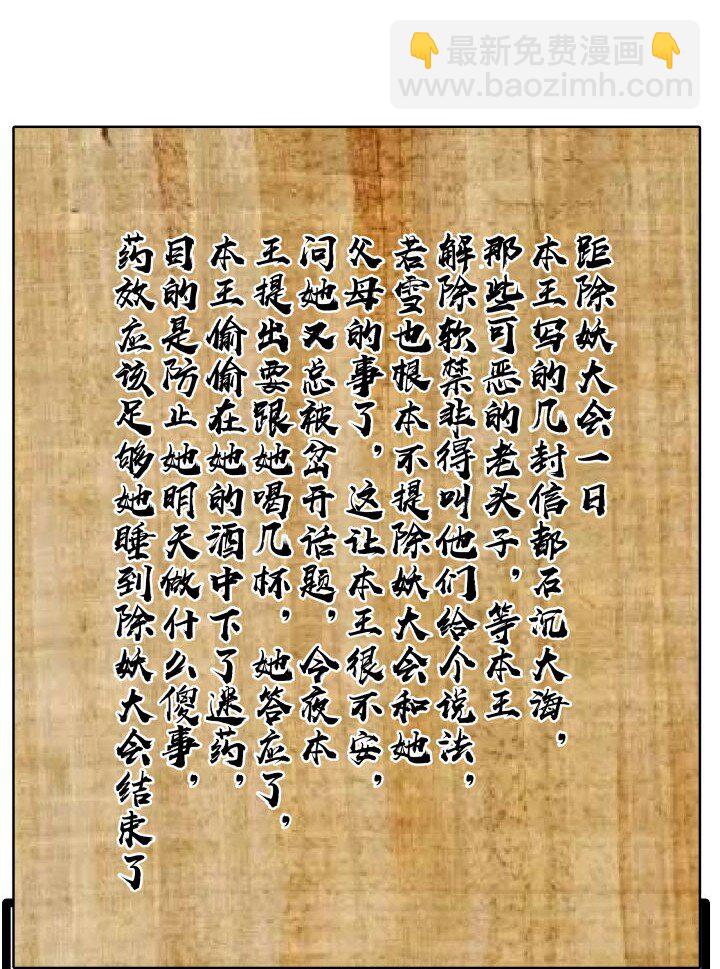 👇最新免费漫画👇
www.baozimh.com
距除妖大会一日
本王写的几封信都石沉大海，
那些可恶的老头子，等本王
解除软禁非得叫他们给个说法，
若雪也根本不提除妖大会和她
父母的事了，这让本王很不安，
问她又总被岔开话题，今夜本
王提出要跟她喝几杯，她答应了，
本王偷偷在她的酒中下了迷药，
目的是防止她明天做什么傻事，
药效应该足够她睡到除妖大会结束了